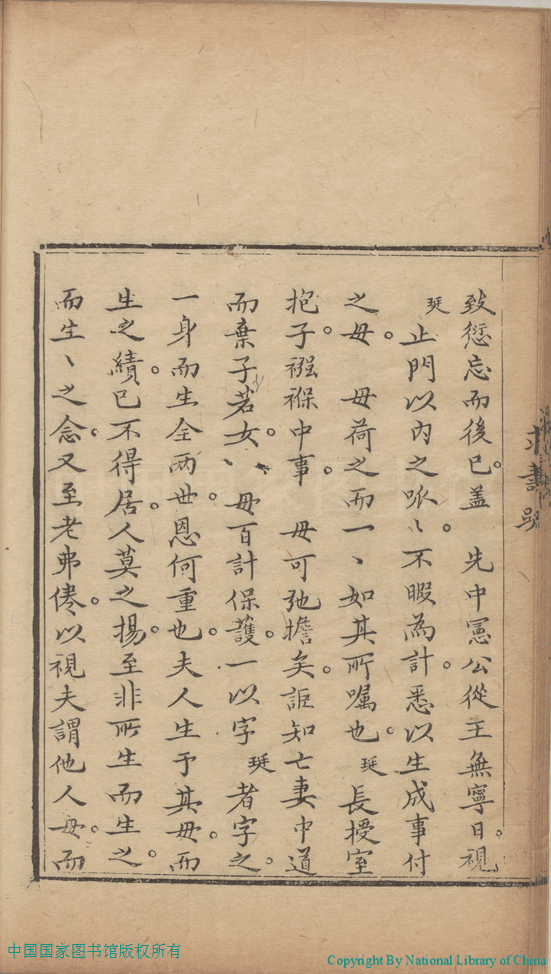 致愆忘而後已盖 先中憲公從王無寧日視
珽止門以內之呱丶不暇為計悉以生成事付
之母 母荷之而一丶如其所囑也珽長授室
抱子襁褓中事 母可弛擔矣詎知亡妻中道
而棄子若女丶 母百計保護一以字珽者字之
一身而生全兩世恩何重也夫人生于其母而
生之績已不得居人莫之揚至非所生而生之
而生丶之念又至老弗倦以視夫謂他人母而
求書
中国国家图书馆版权所有
Copyright By National Library of China